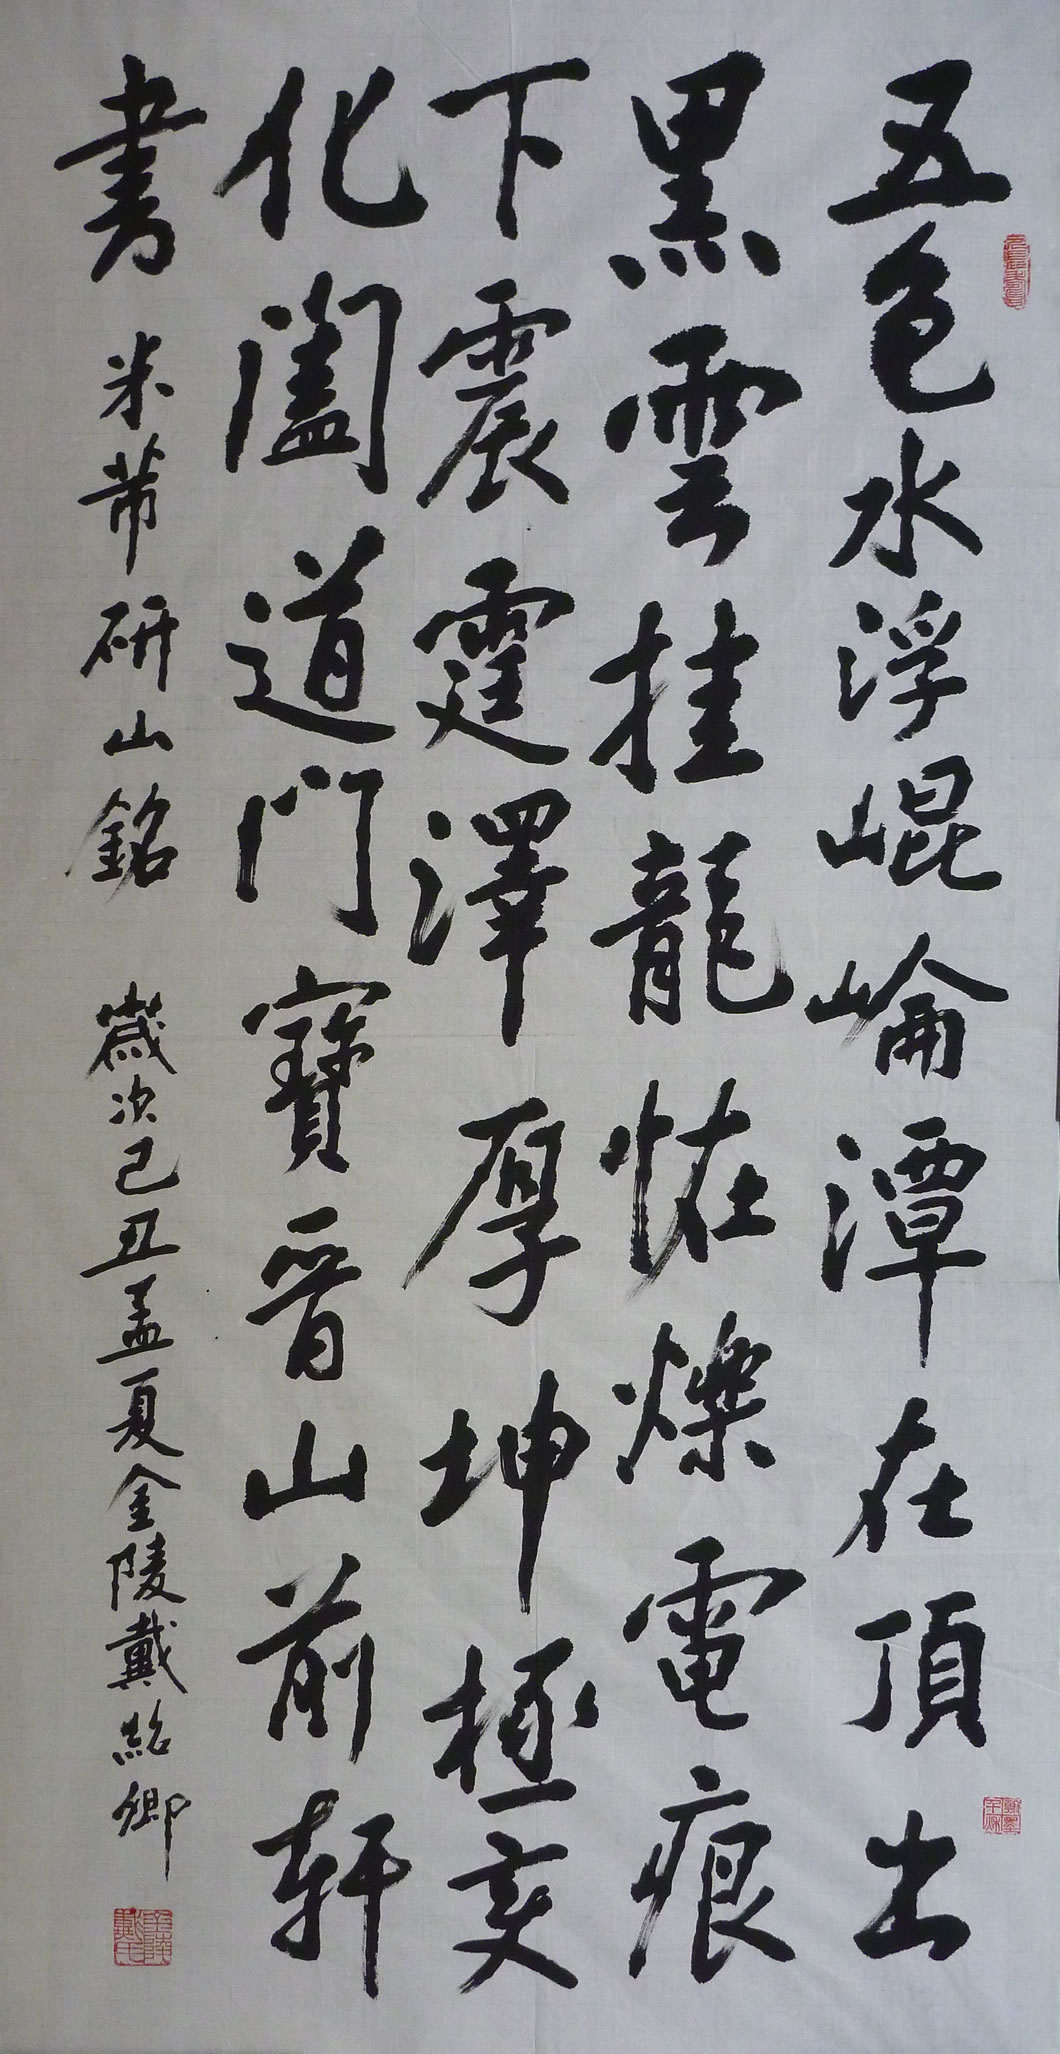 五色水浮崐崘潭在頂出
黑雲挂龍恠爍電痕
下震霆澤厚坤極变
化闔道門寶晉山前軒
書 米芾研山銘 歲次己丑孟夏金陵戴紹卿